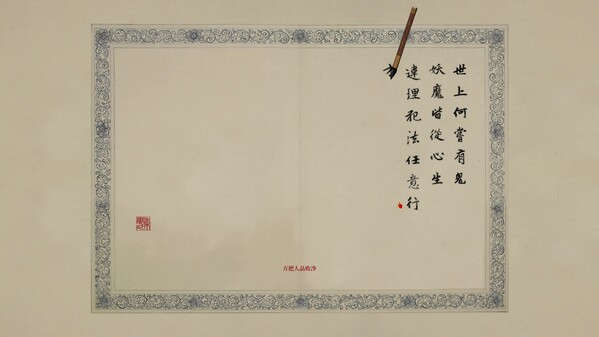 世上何嘗有鬼
妖魔皆從心生
違理犯法任意行
方把人品喪淨